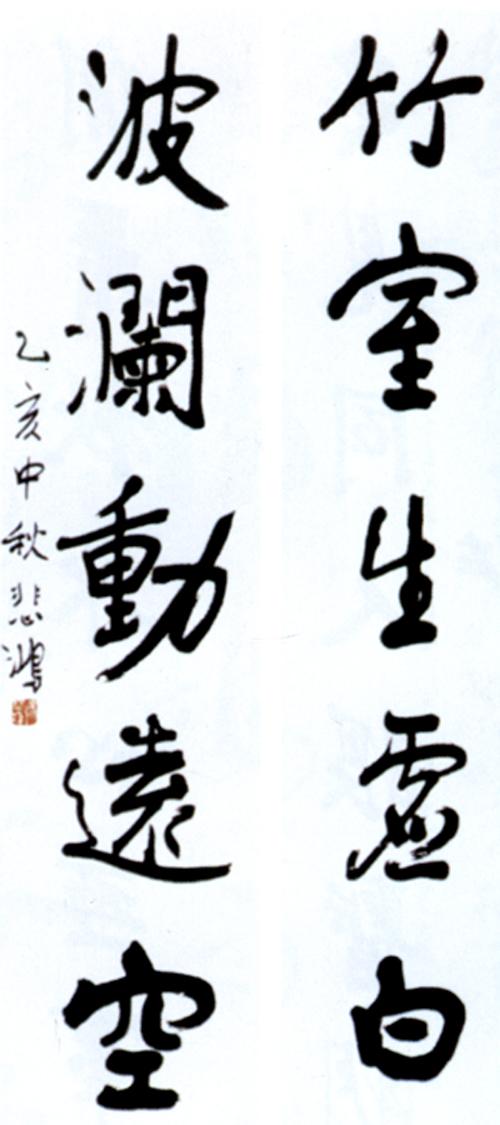 竹室生虛白
波瀾動遠空
乙亥中秋悲鴻